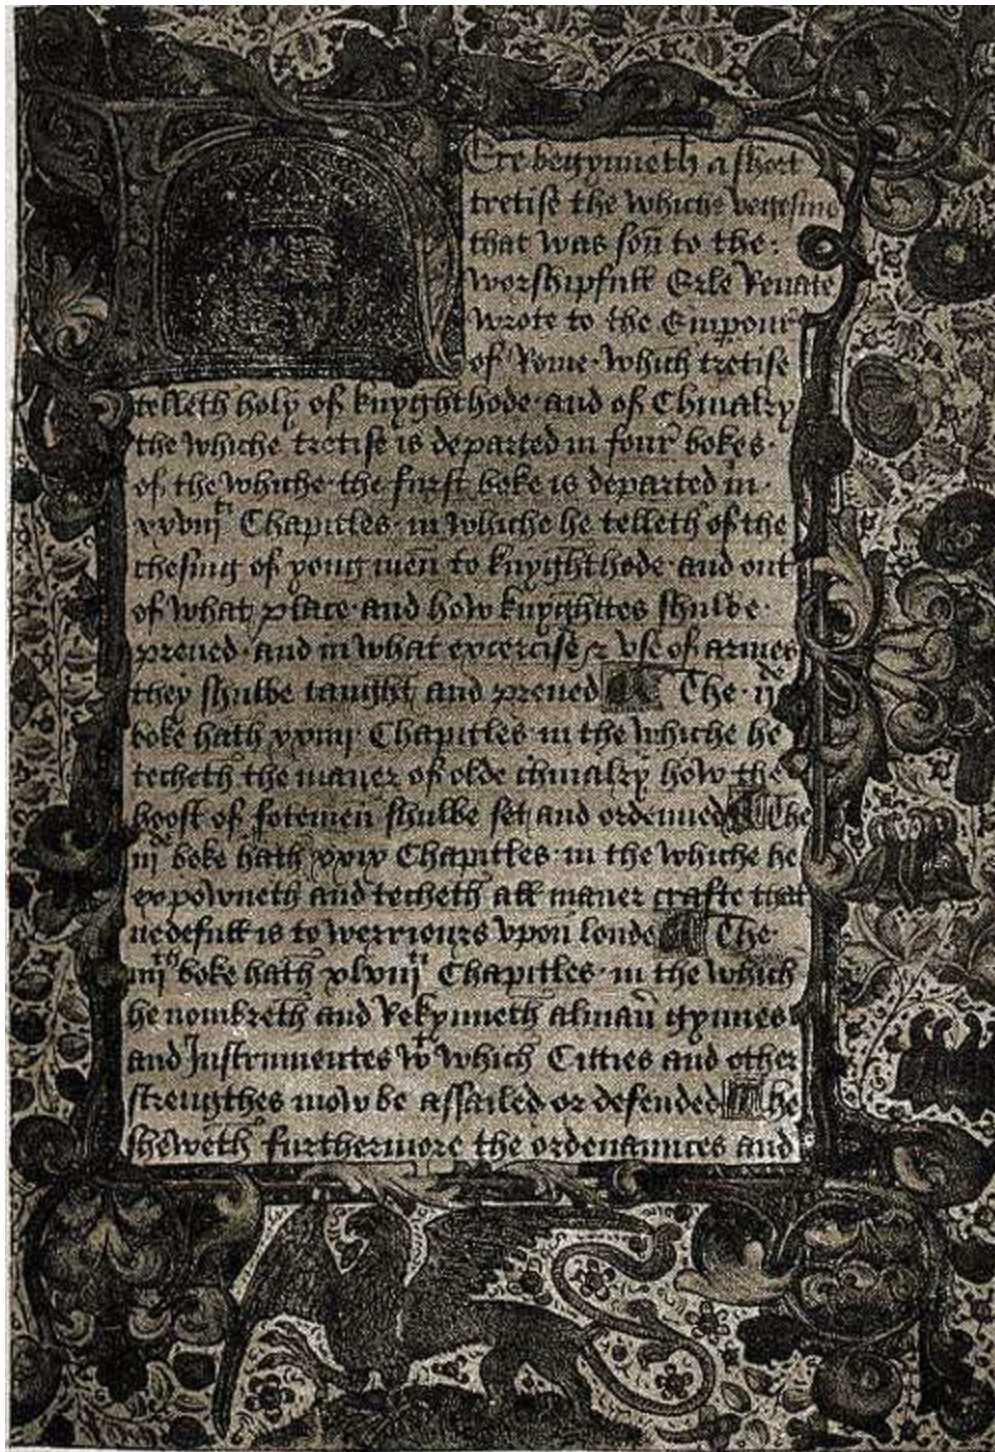 Here begynneth a short
tretise the whiche vegesius
that was son to the:
worshipfull Erle Renate
wrote to the Empour
of Rome· which tretise
telleth holy of knyghthode· and of Chiualry
the whiche tretise is departed in four bokes·
of the whiche· the furst boke is departed in·
xxviij Chapitles· in whiche he telleth of the
chesing of yong men to knyghthode· and out
of what place· and how knyghttes shulbe·
preued· and in what excercise & vse of armes
they shulbe taught and preued The· ijde
boke hath xxiiij Chapitles· in the whiche he
techeth the maner of olde chiualry how the
hoost of fotemen shulbe set and ordeined The
iijde boke hath xxvj Chapitles· in the whiche he
expowneth and techeth all maner crafte that
nedefull is to werriours vpon londe The·
iiijth boke hath xlviij Chapitles· in the which
he nombreth and Rekynneth alman gynnes
and Instrumentes wt which Citties and other
strengthes mow be assailed or defended he
sheweth furthermore the ordenaunces and